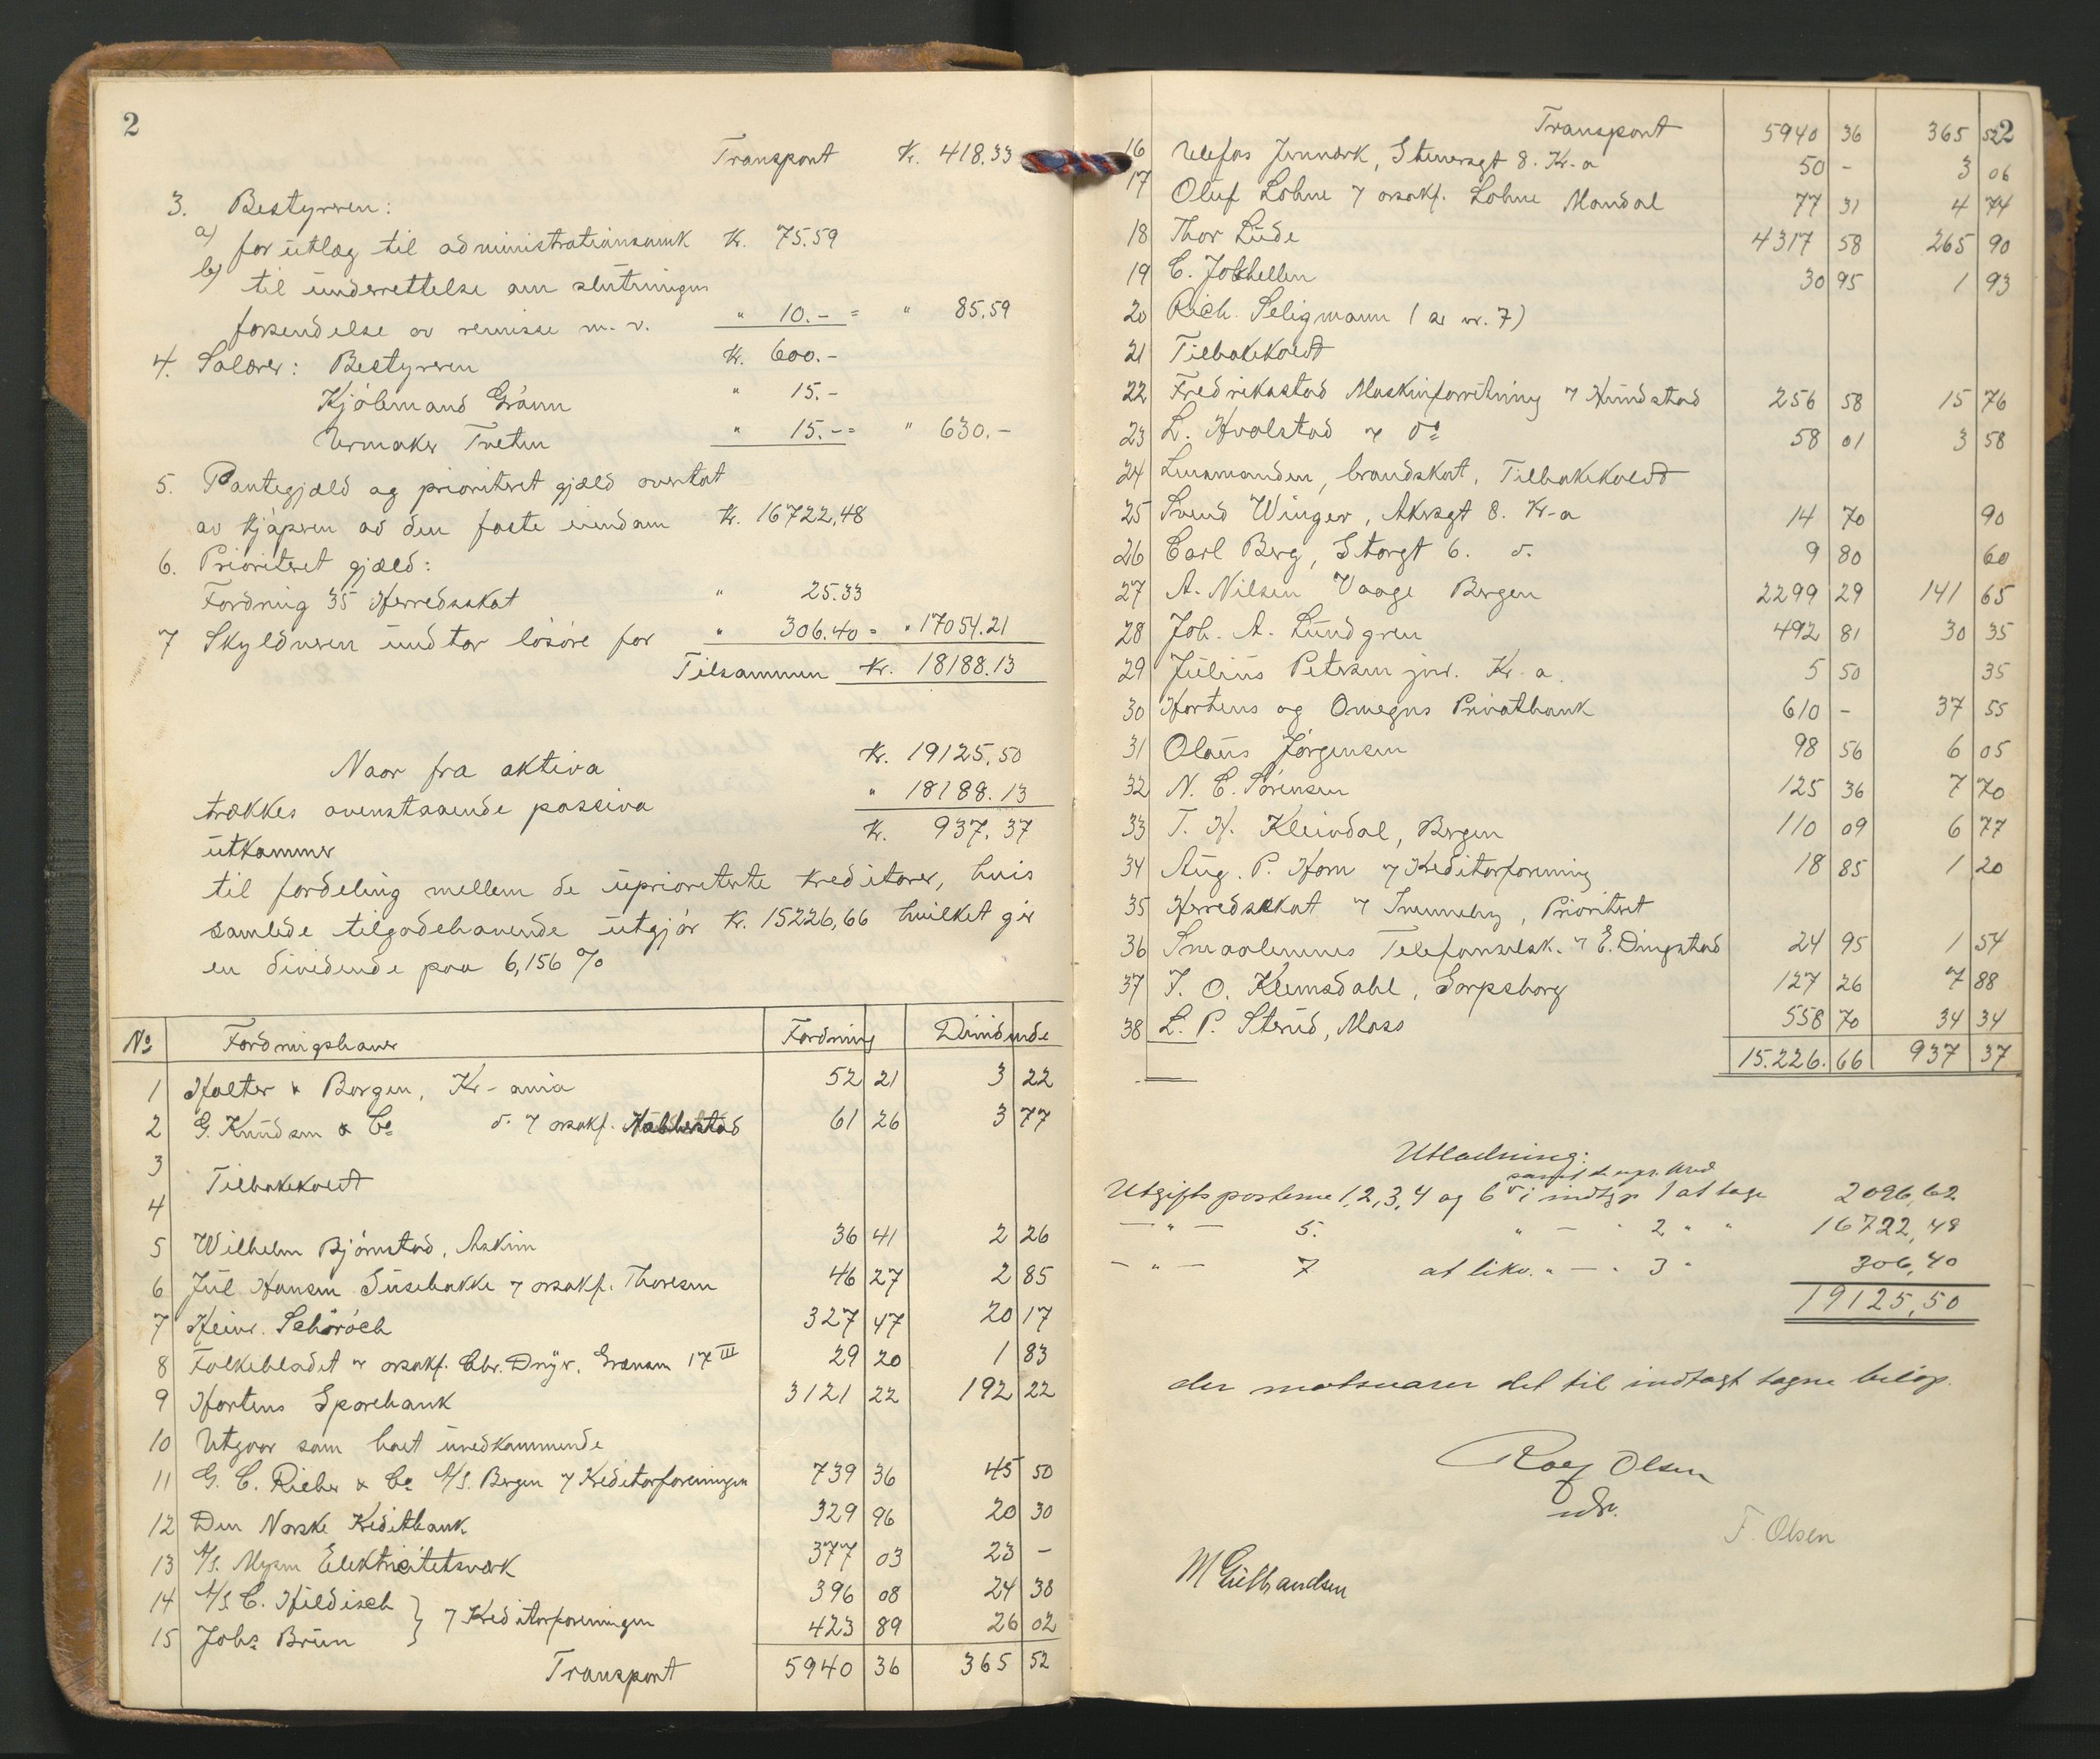 2
Transport Kr. 418.33
3. Bestyreren:
a) for utlæg til administrationsomk Kr. 75.59
b) til underrettelse om slutningen
forsendelse av remisse m. v. " 10.- = " 85.59
4. Salærer: Bestyreren Kr. 600.-
Kjöbmand Grönn " 15.-
Urmaker Tveten " 15.- = " 630.-
5. Pantegjæld og prioritert gjæld overtat
av kjöperen av den faste eiendom Kr. 16722,48
6. Prioritert gjæld:
Fordring 35 Herredsskat " 25.33
7 Skyldneren undtar lösöre for " 306.40 = " 17054.21
Tilsammen Kr. 18188.13
Naar fra aktiva Kr. 19125.50
trækkes ovenstaaende passiva " 18188.13
utkommer Kr. 937.37
til fordeling mellem de uprioriterte kreditorer, hvis
samlede tilgodehavende utgjör Kr. 15226,66 hvilket gir
en dividende paa 6,156 %
No Fordringshaver Fordring Dividende
1 Holter & Borgen, Kr-ania 52 21 3 22
2 G. Knudsen & Co d. v orsakf. 61 26 3 77
3
Tilbakekaldt
4
5 Wilhelm Björnstad, Askim 36 41 2 26
6 Jul. Hansen Susebakke v orsakf. Thoresen 46 27 2 85
7 Heinr. Schöröch 327 47 20 17
8 Folkebladet v orsakf. Chr. Dnyr, Grænsen 17 III 29 20 1 83
9 Hortens Sparebank 3121 22 192 22
10 Utgaar som boet uvedkommende
11 G. C. Rieber & Co A/S. Bergen v Kreditorforeningen 739 36 45 50
12 Den Norske Kreditbank 329 96 20 30
13 A/S. Mysen Elektricitetsværk 377 03 23 -
14 A/S C. Hildisch } v Kreditorforeningen 396 08 24 38
15 Johs. Brun 423 89 26 02
Transport 5940 36 365 52
2
Transport 5940 36 365 52
16 Ulefos Jernværk, Stenersgt 8. Kr-a 50 - 3 06
17 Oluf Lohne v orsakf. Lohne Mandal 77 31 4 74
18 Thor Lude 4317 58 265 90
19 C. Jokhellen 30 95 1 93
20 Rich. Seligmann (se nr. 7)
21 Tilbakekaldt
22 Fredrikstad Maskinforretning v Hundstad 256 58 15 76
23 L. Hvalstad v do 58 01 3 58
24 Lensmanden, brandskat. Tilbakekaldt
25 Svend Winger, Akersgt 8. Kr-a 14 70 90
26 Carl Berg, Storgt 6. d. 9 80 60
27 A. Nilsen Vaage Bergen 2299 29 141 65
28 Joh. A. Lundgren 492 81 30 35
29 Julius Petersen jnr. Kr.a. 5 50 35
30 Hortens og Omegns Privatbank 610 - 37 55
31 Olaus Jörgensen 98 56 6 05
32 N. C. Sörensen 125 36 7 70
33 T. H. Kleivdal, Bergen 110 09 6 77
34 Aug. P. Horn v Kreditorforening 18 85 1 20
35 Herredsskat v Svenneby, Prioritert
36 Smaalenenes Telefonselsk. v E. Dingstad 24 95 1 54
37 J. O. Klemsdahl, Sarpsborg 127 26 7 88
38 L. P. Sterud, Moss 558 70 34 34
15.226.66 937 37
Utlodning:
samt de upr. kred.
Utgiftsposterne 1, 2, 3, 4 og 6 i indtgp 1 at tage 2096,62
— " — 5. " — " 2 " " 16722,48
— " — 7 at likv. " — " 3 " 306,40
19125,50
der motsvarer det til indtægt tagne belöp.
Rolf Olsen
F. Olsen
M Gulbrandsen